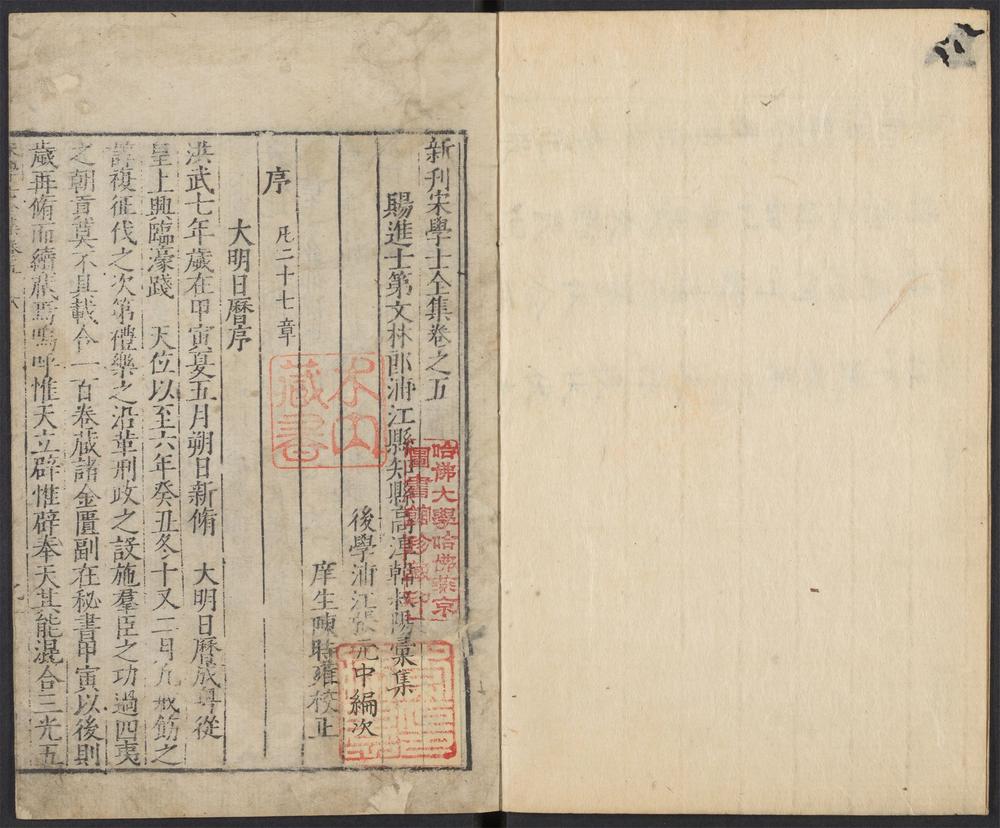 新刋宋學士全集卷之五
賜進士第文林郎浦江縣知縣高淳韓叔陽彙集
後學浦江張元中編次
庠生陳時雍校正
序 凡二十七章
大明日曆序
洪武七年歲在甲寅夏五月朔日新脩 大明日曆成粵從
皇上興臨濠踐 天位以至六年癸丑冬十又二月凡戒飭之
詳複征伐之次第禮樂之沿革刑政之設施羣臣之功過四夷
之朝貢莫不具載合一百卷藏諸金匱副在秘書甲寅以後則
歲再脩而續藏焉嗚呼惟天立辟惟辟奉天其能混合三光五
哈佛大學哈佛燕京
圖書館珍藏印
藏書